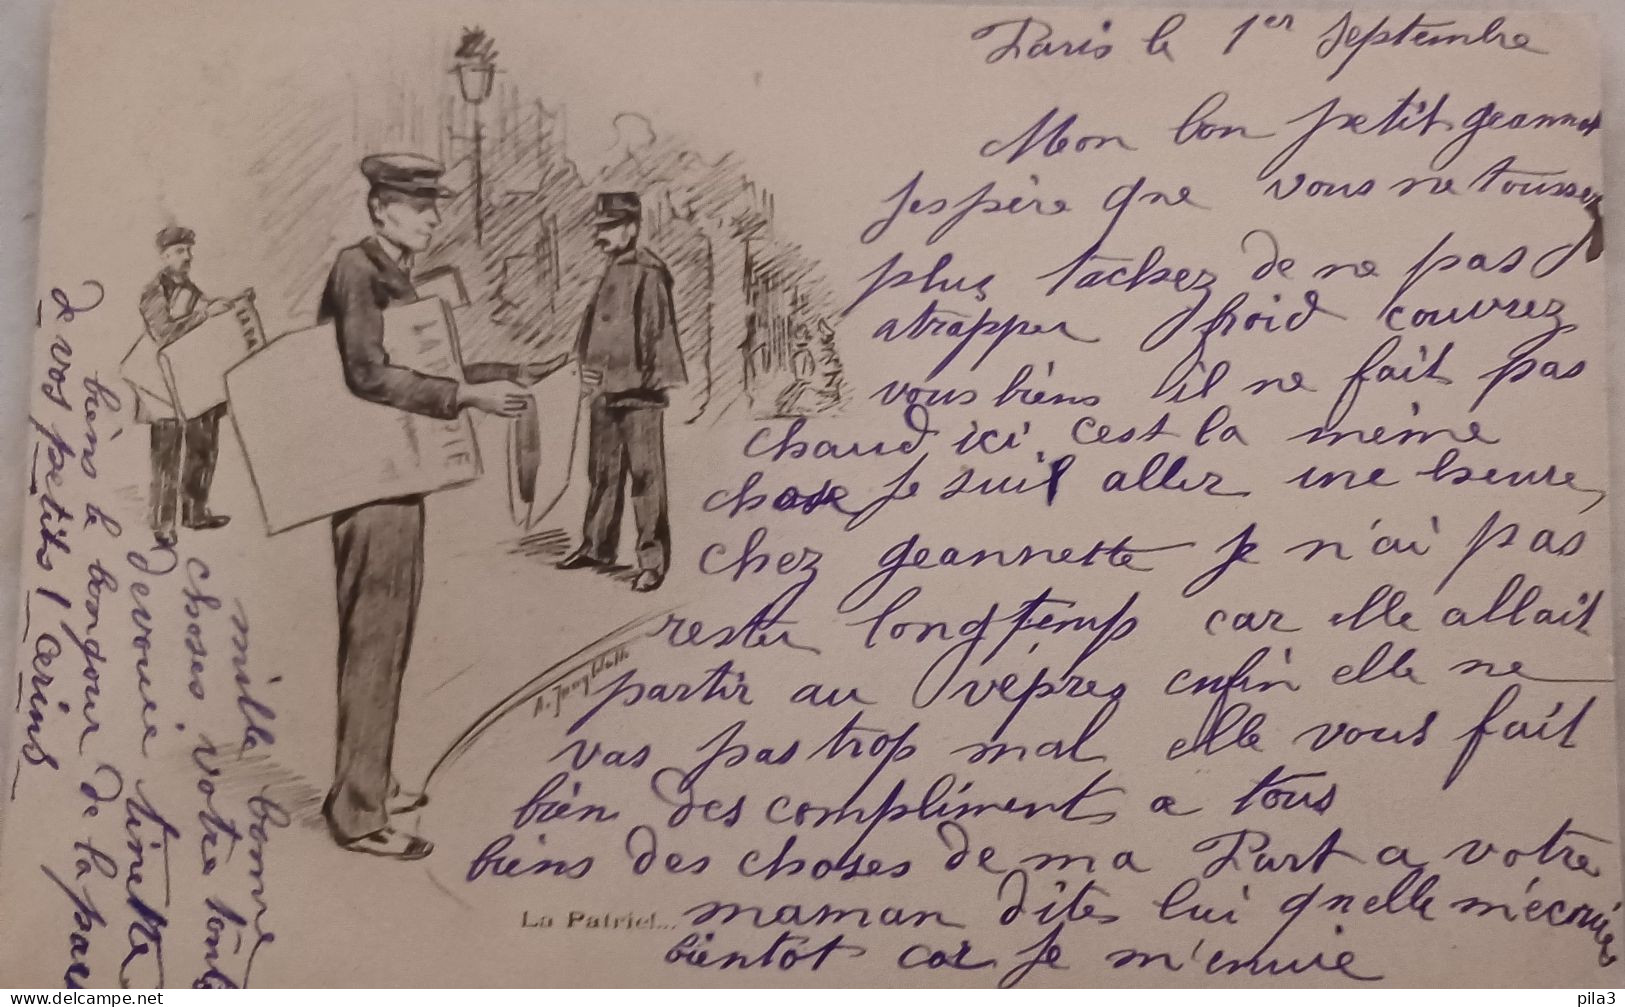 Paris le 1er Septembre
Mon bon petit geannot
Jespère que vous ne tousser
plus tachez de ne pas
atrapper froid couvrez
vous biens il ne fait pas
chaud ici cest la même
chose je suis aller une heure
chez geannette je n'ai pas
rester longtemp car elle allait
partir au vêpres enfin elle ne
vas pas trop mal elle vous fait
bien des compliments a tous
biens des choses de ma Part a votre
maman dites lui quelle m'écrive
bientot car je m'enuie
mille bonne
choses votre
devouée Tinette
biens le bonjour de la part
de vos petits Cerins
LA PATRIE
LA PA
A. Jungbluth
La Patrie!...
delcampe.net
pila3